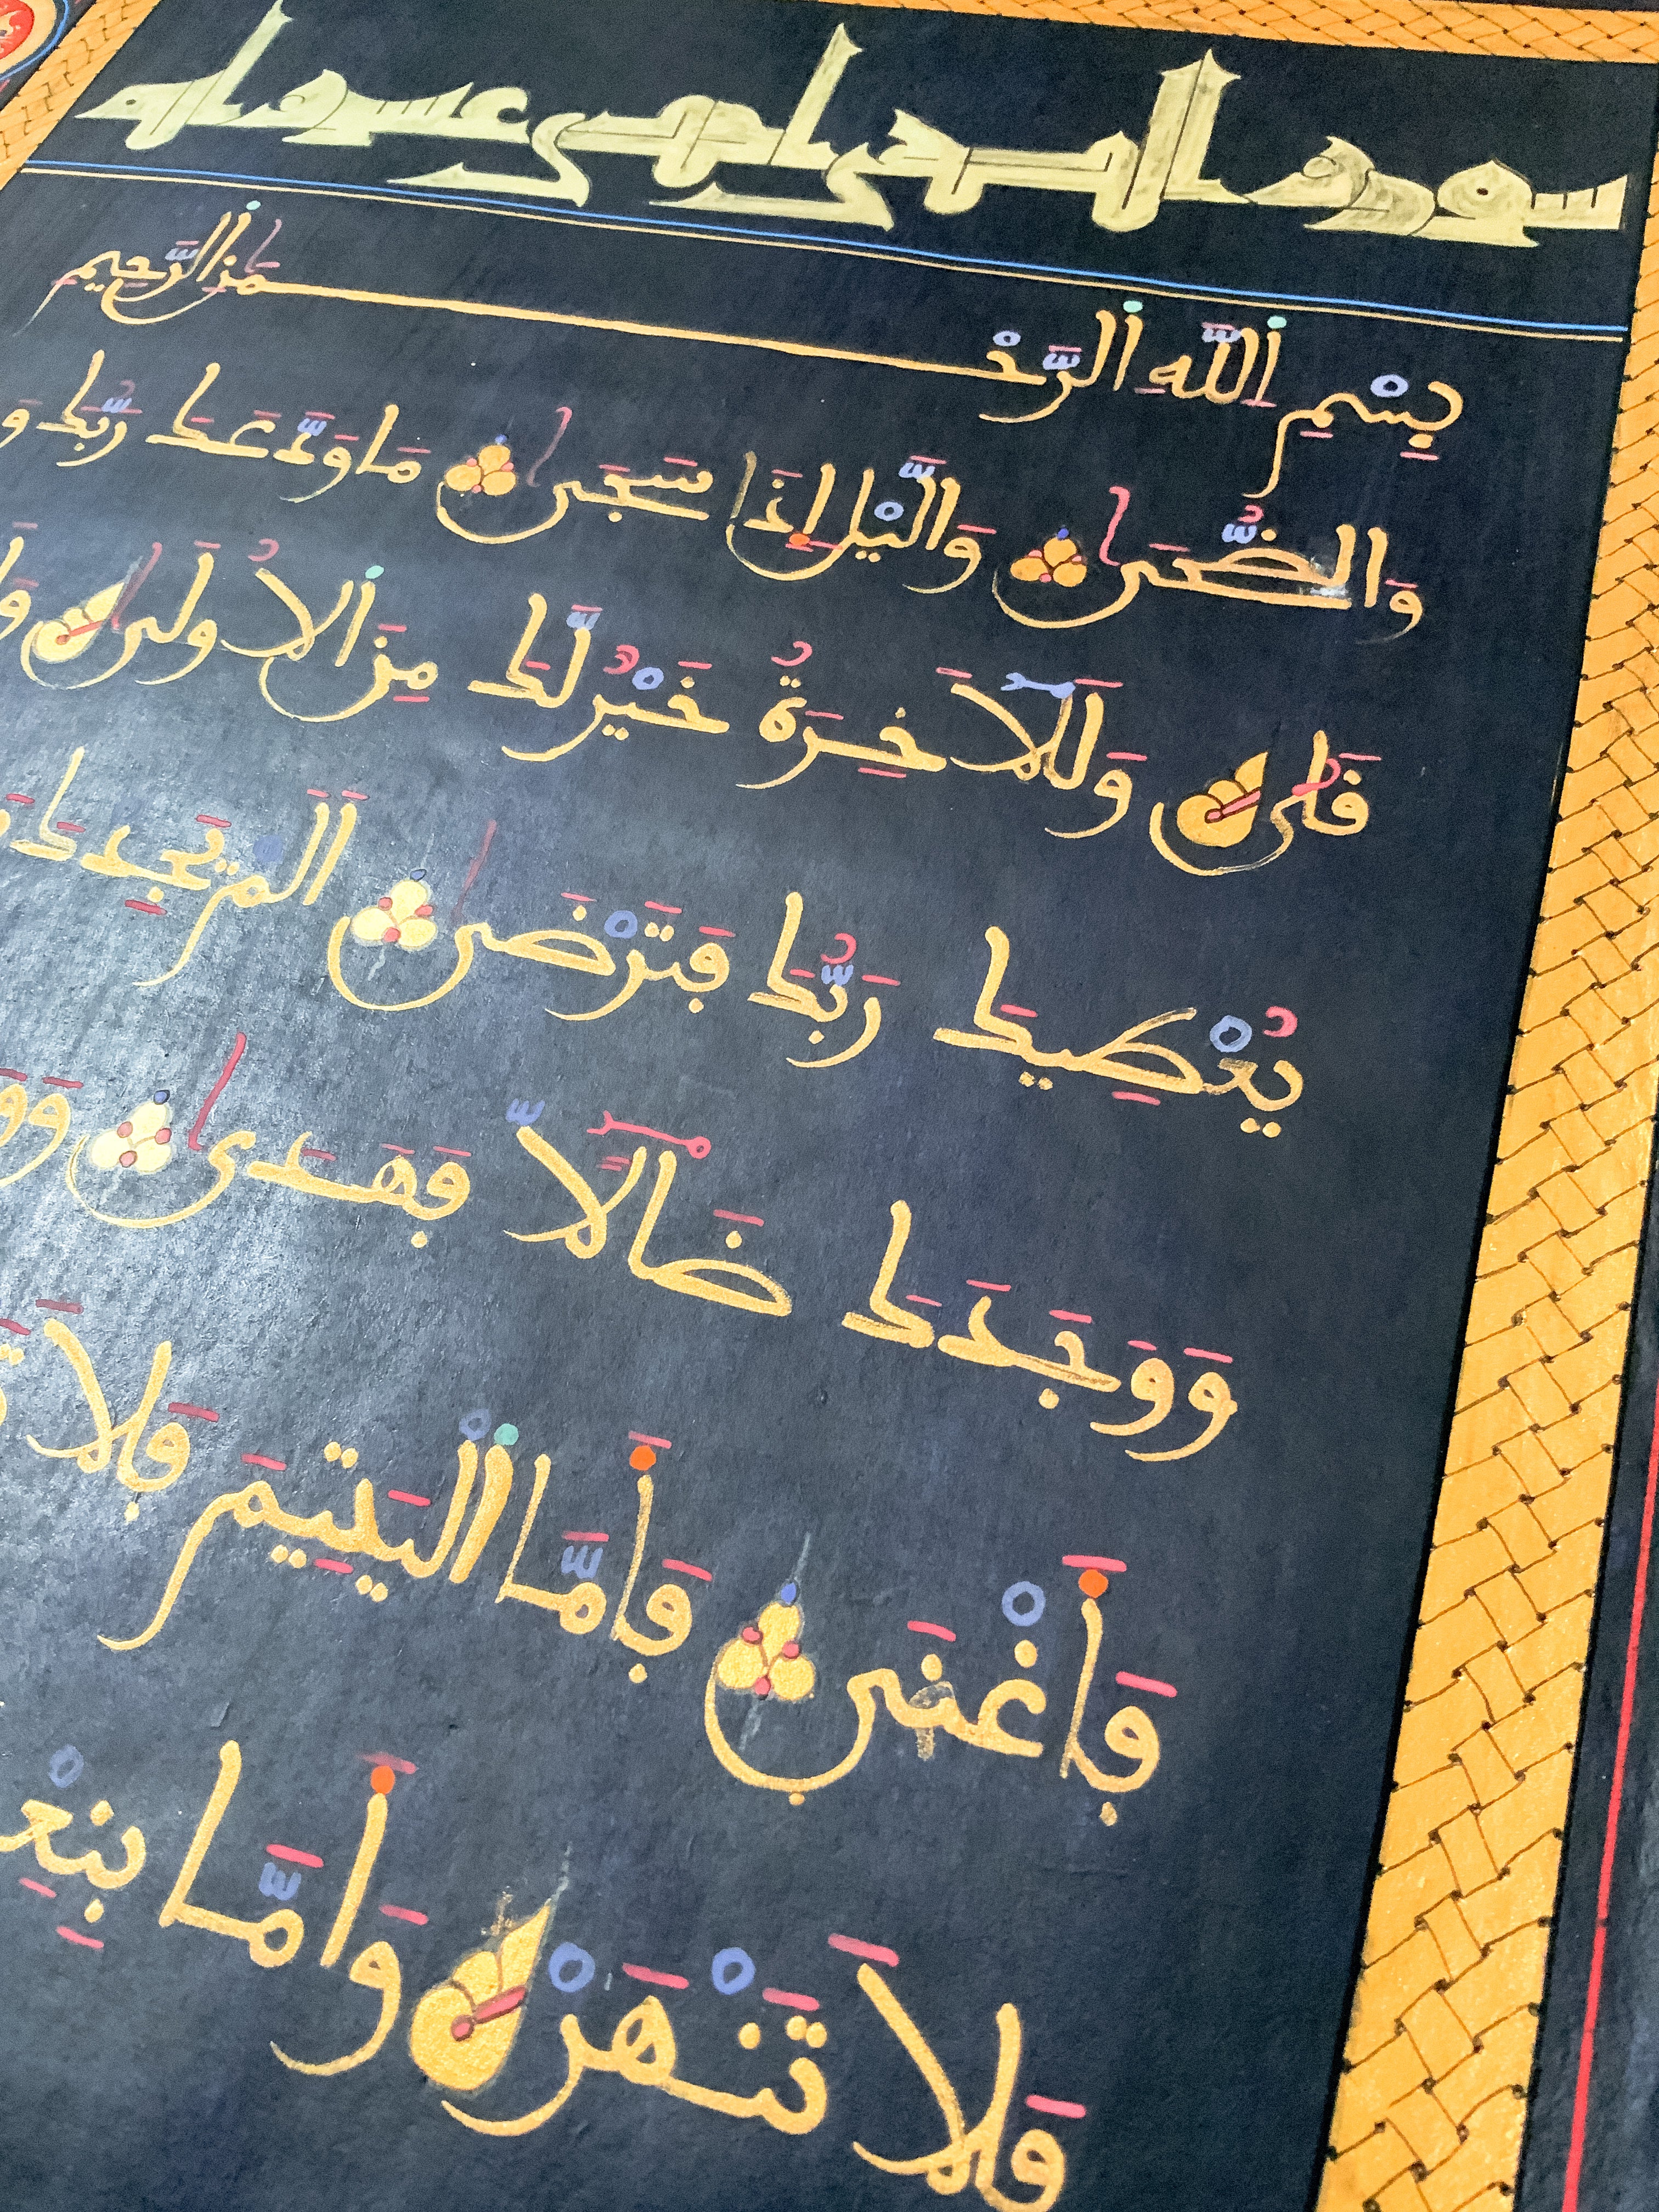 سورة الضحى احدى عشرة اية
بِسْمِ اللَّهِ الرَّحْمَٰنِ الرَّحِيمِ
وَالضُّحَىٰ وَالَّيْلِ إِذَا سَجَىٰ مَا وَدَّعَكَ رَبُّكَ وَ
قَلَىٰ وَلَلَاخِرَةُ خَيْرٌ لَّكَ مِنَ الُاولَىٰ وَ
يُعْطِيكَ رَبُّكَ فَتَرْضَىٰ أَلَمْ يَجِدْكَ
وَوَجَدَكَ ضَالًّا فَهَدَىٰ وَوَ
فَأَغْنَىٰ فَأَمَّا الْيَتِيمَ فَلَا
فَلَا تَنْهَرْ وَأَمَّا بِنِعْ